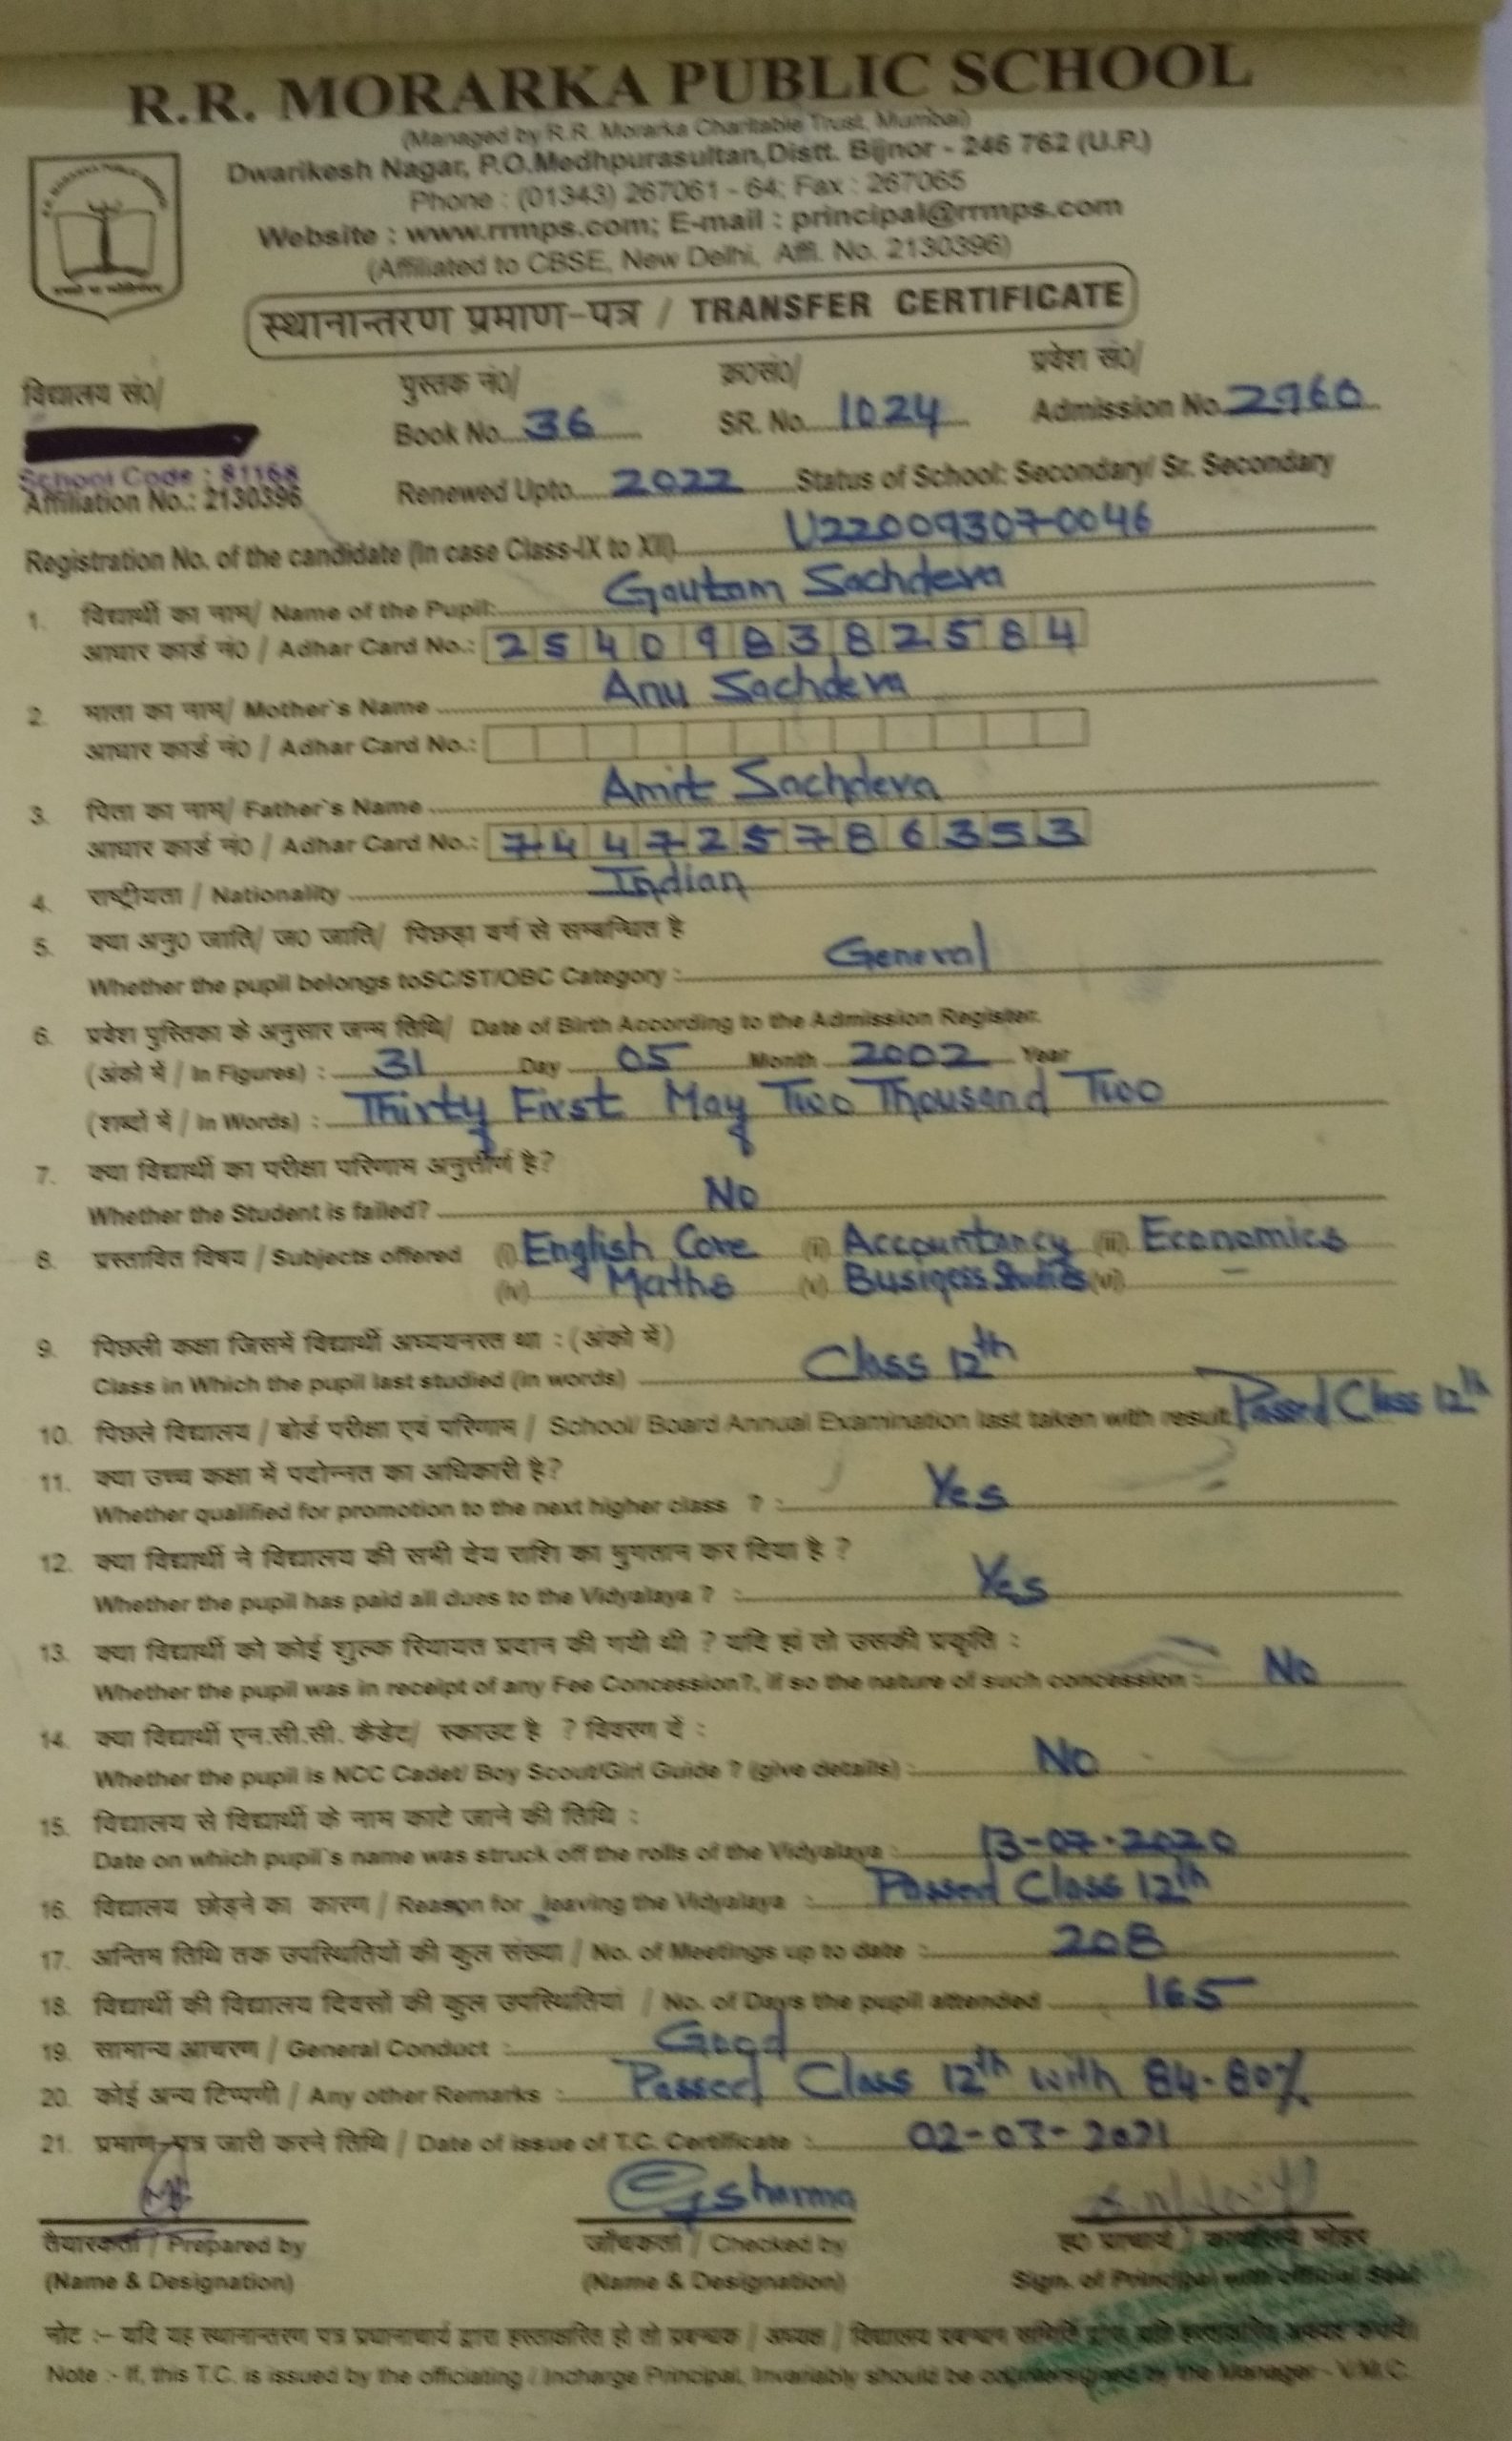 R.R. MORARKA PUBLIC SCHOOL
(Managed by R.R. Morarka Charitable Trust, Mumbai)
Dwarikesh Nagar, P.O.Medhpurasultan,Distt. Bijnor - 246 762 (U.P.)
Phone : (01343) 267061 - 64; Fax : 267065
Website : www.rrmps.com; E-mail : principal@rrmps.com
(Affiliated to CBSE, New Delhi, Affl. No. 2130396)
स्थानान्तरण प्रमाण-पत्र / TRANSFER CERTIFICATE
विद्यालय सं0/ पुस्तक नं0/ क्र0सं0/ प्रवेश सं0/
Book No. 36 SR. No. 1024 Admission No. 2960
School Code : 81168
Affiliation No.: 2130396 Renewed Upto 2022 Status of School: Secondary/ Sr. Secondary
Registration No. of the candidate (In case Class-IX to XII) U22009307-0046
1. विद्यार्थी का नाम/ Name of the Pupil: Gautam Sachdeva
आधार कार्ड नं0 / Adhar Card No.: 2 5 4 0 9 8 3 8 2 5 8 4
2. माता का नाम/ Mother`s Name Anu Sachdeva
आधार कार्ड नं0 / Adhar Card No.:
3. पिता का नाम/ Father`s Name Amit Sachdeva
आधार कार्ड नं0 / Adhar Card No.: 7 4 4 7 2 5 7 8 6 3 5 3
4. राष्ट्रीयता / Nationality Indian
5. क्या अनु0 जाति/ ज0 जाति/ पिछड़ा वर्ग से सम्बन्धित है
Whether the pupil belongs toSC/ST/OBC Category : General
6. प्रवेश पुस्तिका के अनुसार जन्म तिथि/ Date of Birth According to the Admission Register.
(अंको में / In Figures) : 31 Day 05 Month 2002 Year
(शब्दों में / In Words) : Thirty First May Two Thousand Two
7. क्या विद्यार्थी का परीक्षा परिणाम अनुत्तीर्ण है?
Whether the Student is failed? No
8. प्रस्तावित विषय / Subjects offered (i) English Core (ii) Accountancy (iii) Economics
(iv) Maths (v) Business Studies (vi) –
9. पिछली कक्षा जिसमें विद्यार्थी अध्ययनरत था : (अंको में)
Class in Which the pupil last studied (in words) Class 12th
10. पिछले विद्यालय / बोर्ड परीक्षा एवं परिणाम / School/ Board Annual Examination last taken with result Passed Class 12th
11. क्या उच्च कक्षा में पदोन्नत का अधिकारी है?
Whether qualified for promotion to the next higher class ? : Yes
12. क्या विद्यार्थी ने विद्यालय की सभी देय राशि का भुगतान कर दिया है ?
Whether the pupil has paid all dues to the Vidyalaya ? : Yes
13. क्या विद्यार्थी को कोई शुल्क रियायत प्रदान की गयी थी ? यदि हां तो उसकी प्रकृति :
Whether the pupil was in receipt of any Fee Concession?, if so the nature of such concession : No
14. क्या विद्यार्थी एन.सी.सी. कैडेट/ स्काउट है ? विवरण दें :
Whether the pupil is NCC Cadet/ Boy Scout/Girl Guide ? (give details) : No
15. विद्यालय से विद्यार्थी के नाम काटे जाने की तिथि :
Date on which pupil`s name was struck off the rolls of the Vidyalaya : 13-07-2020
16. विद्यालय छोड़ने का कारण / Reason for leaving the Vidyalaya : Passed Class 12th
17. अन्तिम तिथि तक उपस्थितियों की कुल संख्या / No. of Meetings up to date : 208
18. विद्यार्थी की विद्यालय दिवसों की कुल उपस्थितियां / No. of Days the pupil attended 165
19. सामान्य आचरण / General Conduct : Good
20. कोई अन्य टिप्पणी / Any other Remarks : Passed Class 12th with 84.80%
21. प्रमाण-पत्र जारी करने तिथि / Date of issue of T.C. Certificate : 02-03-2021
Sharma
तैयारकर्ता / Prepared by जाँचकर्ता / Checked by ह0 प्राचार्य / कार्यालय मोहर
(Name & Designation) (Name & Designation) Sign. of Principal with official Seal
नोट :- यदि यह स्थानान्तरण पत्र प्रधानाचार्य द्वारा हस्ताक्षरित हो तो प्रबन्धक / अध्यक्ष / विद्यालय प्रबन्धन समिति
Note :- If, this T.C. is issued by the officiating / Incharge Principal, Invariably should be countersigned by the Manager - V.M.C.